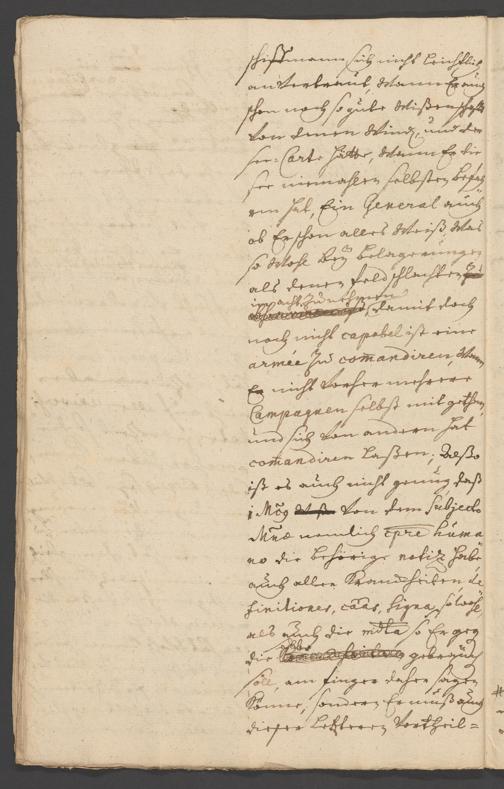 schiffmann sich nicht leichtlich
anvertraut, wann Er auch
schon noch so gute Wißenschafft
von denen Wind, und der
See-Carte hätte, wann Er die
See niemahlen selbsten befah
ren hat, Ein General auch
ob Er schon alles weiß, was
so wohl bey belagerungen
als denen feldschlachten zu
in acht zu nehmen
damit doch
noch nicht capabel ist eine
armée zu comandiren, wann
Er nicht vorher mehrere
Campagnen selbst mit gethan,
und sich von andern hat
comandiren laßen; also
ist es auch nicht genug daß
von dem Subjecto
nemlich cpre huma
no die behörige notiz habe
auch allen Kranckheiten de
finitiones, caas, signa, so wohl
als auch die mdta so Er geg
die gebrauch
soll, am finger daher sagen
könne, sondern Er muß auch
dieser letzteren Vortheil=